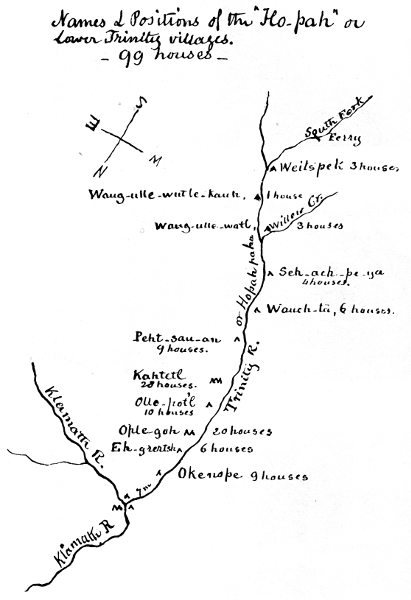 Names & Positions of the "Ho-pah" or
Lower Trinity villages.
- 99 houses -
S
E
N
W
South Fork
Ferry
Weitspek 3 houses
Waug-ulle-wutle-kauh, 1 house
Willow Cr.
Waug-ulle-watl, 3 houses
Seh-ach-pe-ya
4 houses.
Wauch-tä, 6 houses.
or Hopah paha
Trinity R.
Peht-sau-an
9 houses.
Kahtetl
28 houses.
Olle-pot'l
10 houses
Oplegoh 20 houses
Eh-grertsh 6 houses
Okenope 9 houses
7m
Klamath R.
Klamath R